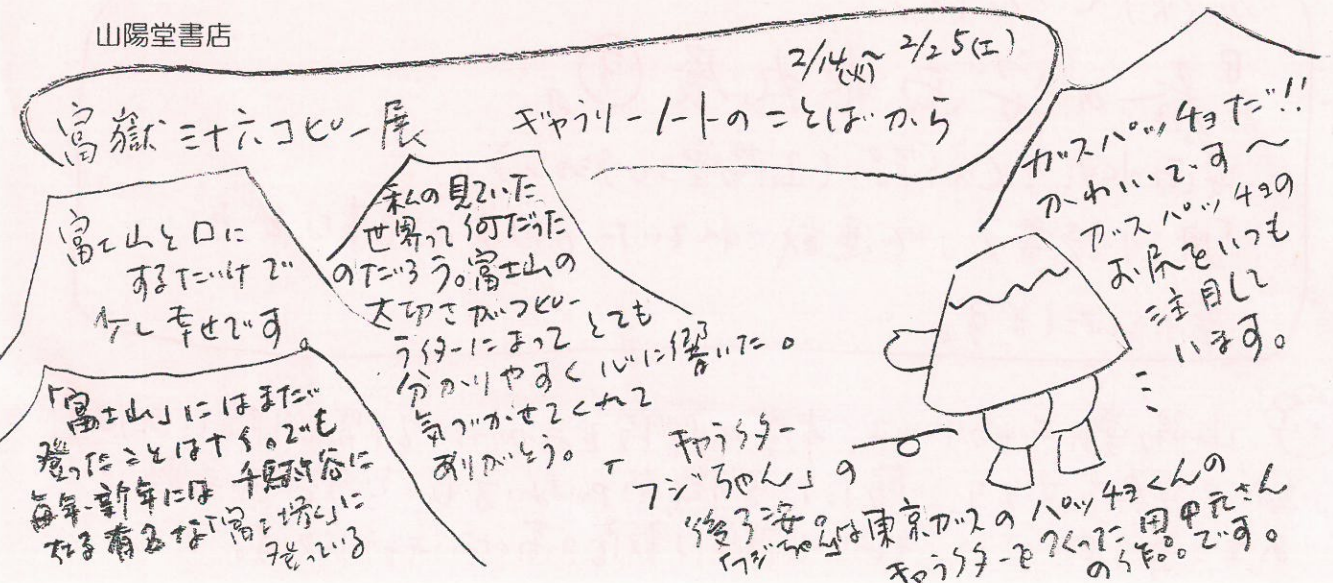 山陽堂書店
富嶽三十六コピー展
2/14(火)〜2/25(土)
ギャラリーノートのことばから
富士山と口に
するだけで
少し幸せです。
私の見ていた
世界って何だった
のだろう。富士山の
大切さがコピー
ライターによってとても
分かりやすく心に響いた。
気づかせてくれて
ありがとう。
「富士山」にはまだ
登ったことはナイ。でも
毎年、新年には千駄ヶ谷に
ある有名な「富士塚」に
登っている
ガスパッチョだ!!
かわいいです〜
ガスパッチョの
お尻をいつも
注目して
います。
キャラクター
「フジちゃん」の
後ろ姿
「フジちゃん」は東京ガスのパッチョくんの
キャラクターをつくった田中元さん
の作品です。